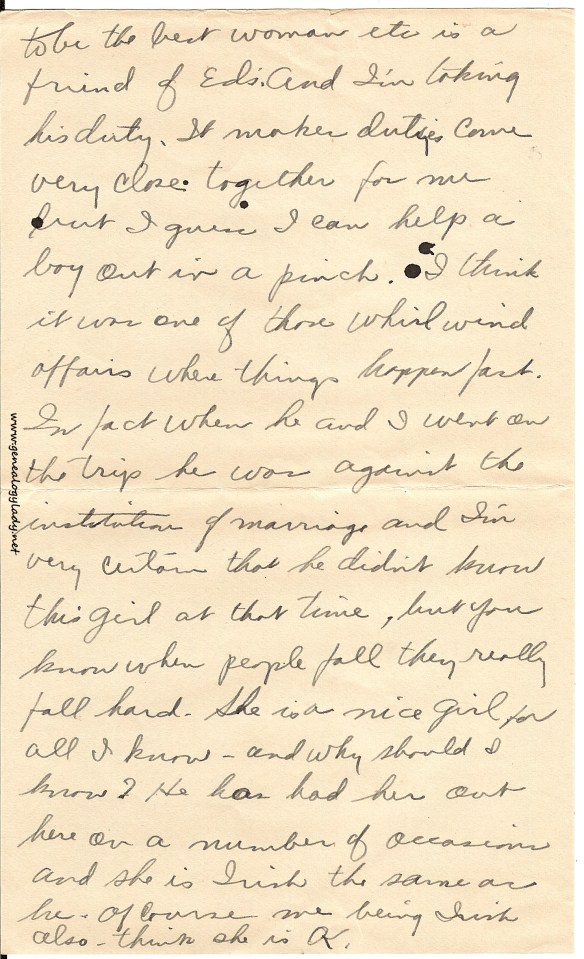 to be the best woman etc is a
friend of Ed's. And I'm taking
his duty. It makes duties come
very close together for me
but I guess I can help a
boy out in a pinch. I think
it was one of those whirl wind
affairs where things happen fast.
In fact when he and I went on
the trip he was against the
institution of marriage and I'm
very certain that he didn't know
this girl at that time, but you
know when people fall they really
fall hard. She is a nice girl for
all I know - and why should I
know? He has had her out
here on a number of occasions
and she is Irish the same as
he - Of course me being Irish
also - think she is OK.
www.genealogylady.net